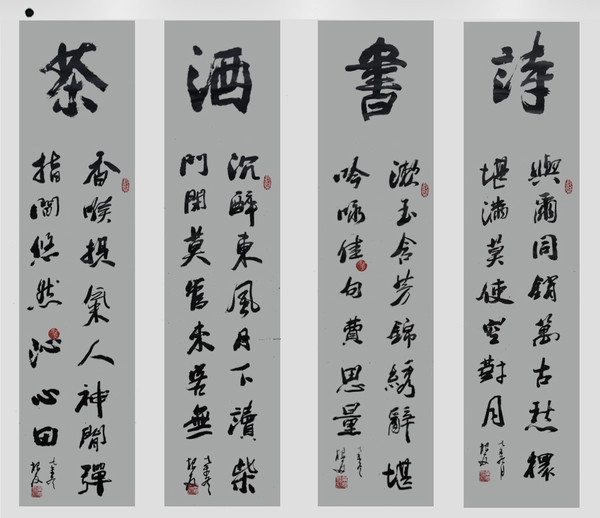 詩
與爾同銷萬古愁
堪滿莫使空對月
書
漱玉含芳錦綉辭堪
吟咏佳句費思量
酒
沉醉東風月下讀柴
門閑莫未無
茶
香喉氣人神閒彈
指間悠然沁心田